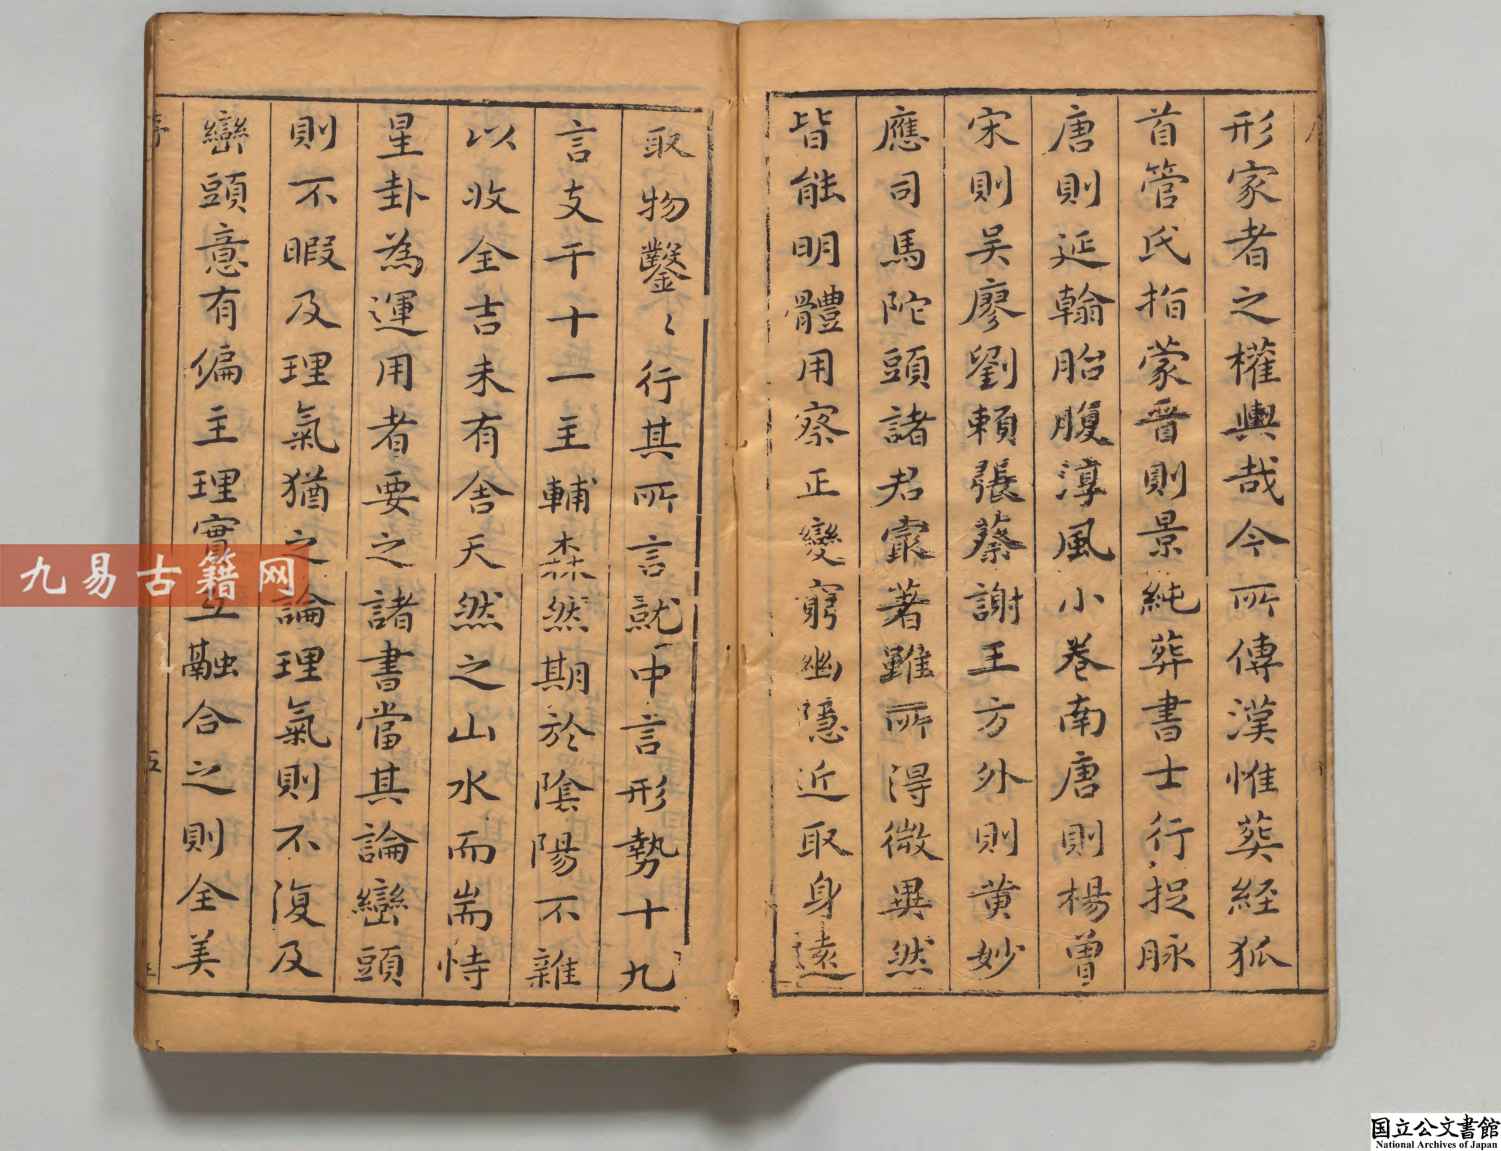 形家者之權輿哉今所傳漢惟葬経狐
首管氏指蒙晉則景純葬書士行捉脉
唐則延翰胎腹淳風小卷南唐則楊曾
宋則吴廖劉賴張蔡謝王方外則黄妙
應司馬陀頭諸君靈著雖所得微異然
皆能明體用察正變窮幽隱近取身遠
取物鑿〻行其所言就中言形勢十九
言支干十一主輔森然期於陰陽不雜
以收全吉未有舍天然之山水而耑恃
星卦為運用者要之諸書當其論巒頭
則不暇及理氣猶之論理氣則不復及
巒頭意有偏主理實互融合之則全美
序
五
九易古籍网
国立公文書館
National Archives of Japan